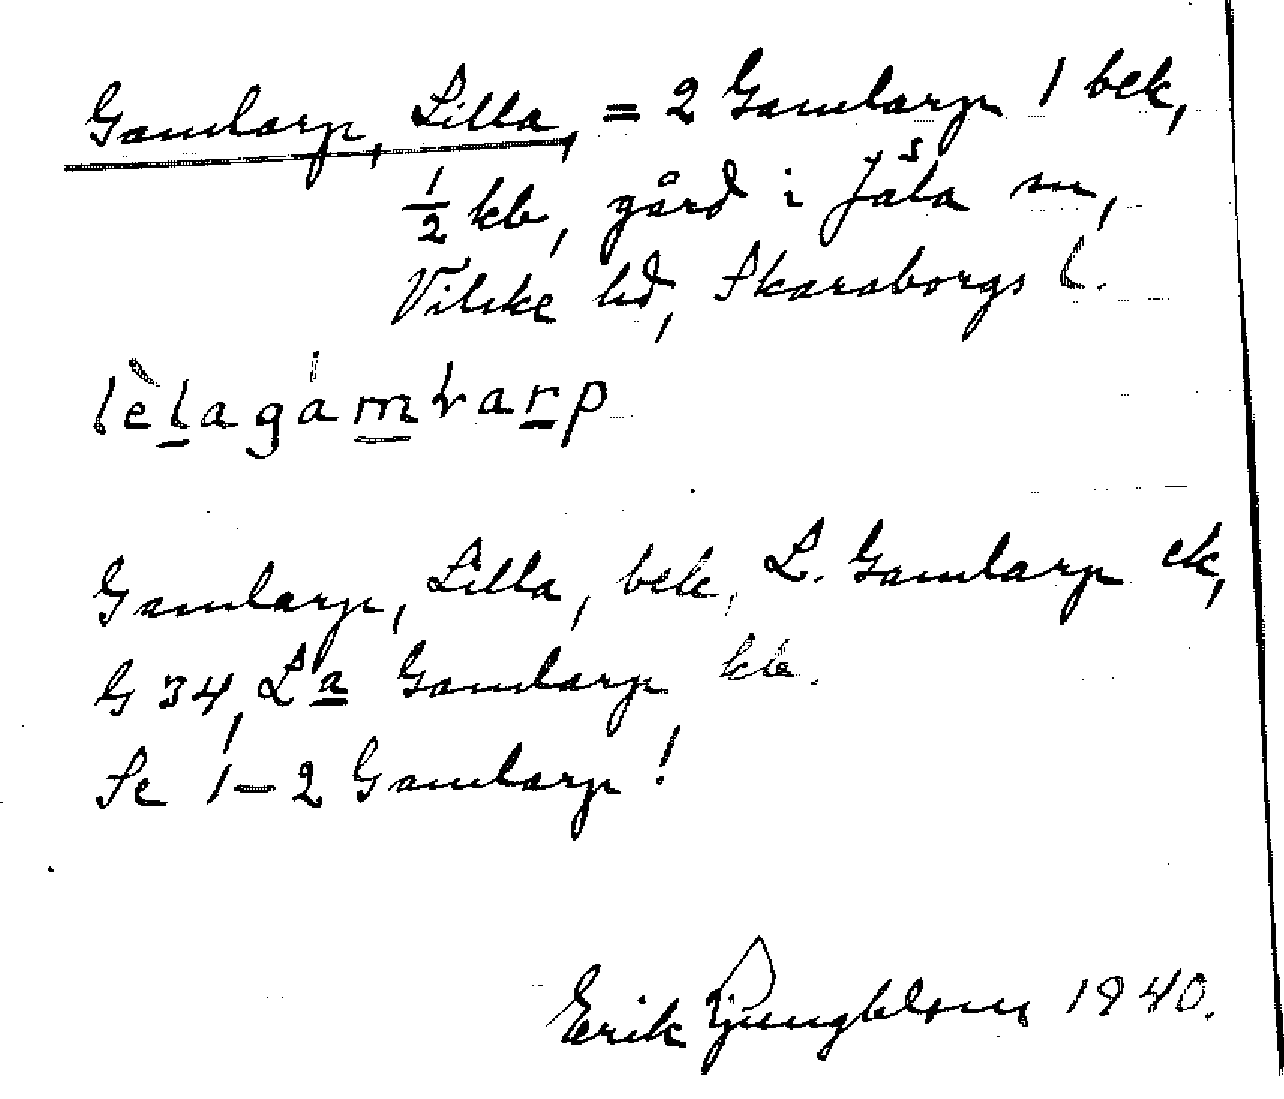 Gamlarp, Lilla, = 2 Gamlarp 1 bek,
1/2 kb, gård i Jäla sn,
Vilske hd, Skaraborgs l.
lèlagámlarp
Gamlarp, Lilla, bek, L. Gamlarp ek,
G 34, La Gamlarp kb.
Se 1–2 Gamlarp!
Erik Ljungblom 1940.